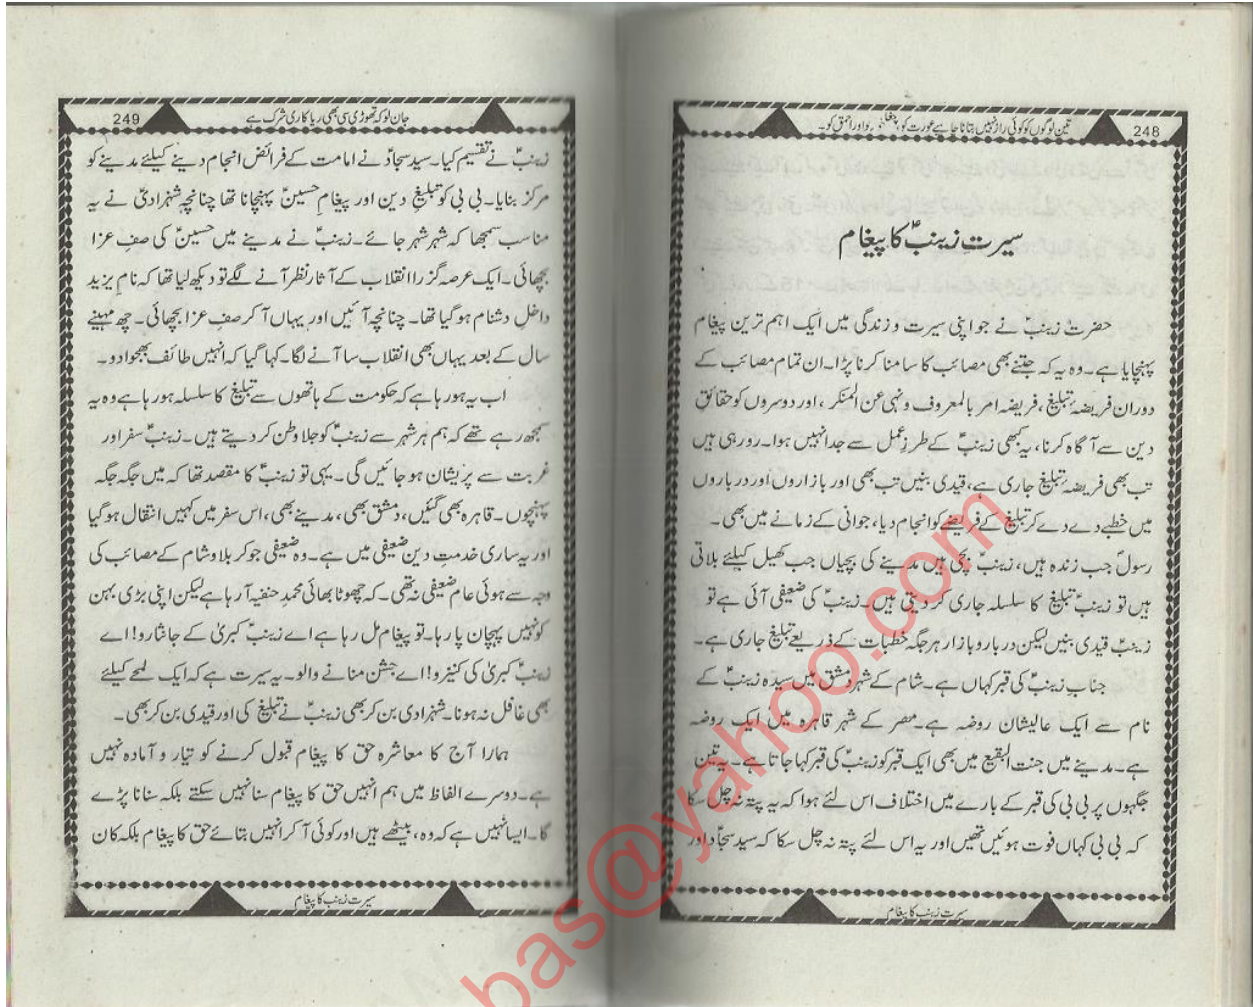 248
تین لوگوں کو کوئی راز نہیں بتانا چاہیے عورت کو، اور احمق کو۔
سیرتِ زینبؑ کا پیغام
حضرت زینبؑ نے جو اپنی سیرت و زندگی میں ایک اہم ترین پیغام
پہنچایا ہے۔ وہ یہ کہ جتنے بھی مصائب کا سامنا کرنا پڑا۔ ان تمام مصائب کے
دوران فریضۂ تبلیغ، فریضہ امر بالمعروف و نہی عن المنکر، اور دوسروں کو حقائقِ
دین سے آگاہ کرنا، یہ کبھی زینبؑ کے طرزِ عمل سے جدا نہیں ہوا۔ رو رہی ہیں
تب بھی فریضۂ تبلیغ جاری ہے، قیدی بنیں تب بھی اور بازاروں اور درباروں
میں خطبے دے دے کر تبلیغ کے فریضے کو انجام دیا، جوانی کے زمانے میں بھی۔
رسولؐ جب زندہ ہیں، زینبؑ بچی ہیں مدینے کی بچیاں جب کھیل کیلئے بلاتی
ہیں تو زینبؑ تبلیغ کا سلسلہ جاری کر دیتی ہیں۔ زینبؑ کی ضعیفی آئی ہے تو
زینبؑ قیدی بنیں لیکن دربار و بازار ہر جگہ خطبات کے ذریعے تبلیغ جاری ہے۔
جنابِ زینبؑ کی قبر کہاں ہے۔ شام کے شہر دمشق میں سیدہ زینبؑ کے
نام سے ایک عالیشان روضہ ہے۔ مصر کے شہر قاہرہ میں ایک روضہ
ہے۔ مدینے میں جنت البقیع میں بھی ایک قبر کو زینبؑ کی قبر کہا جاتا ہے۔ یہ تین
جگہوں پر بی بی کی قبر کے بارے میں اختلاف اس لئے ہوا کہ یہ پتہ نہ چل سکا
کہ بی بی کہاں فوت ہوئیں تھیں اور یہ اس لئے پتہ نہ چل سکا کہ سید سجادؑ اور
سیرت زینب کا پیغام
249
جان لو کہ تھوڑی سی بھی ریاکاری شرک ہے
زینبؑ نے تقسیم کیا۔ سید سجادؑ نے امامت کے فرائض انجام دینے کیلئے مدینے کو
مرکز بنایا۔ بی بی کو تبلیغِ دین اور پیغامِ حسینؑ پہنچانا تھا چنانچہ شہزادیؑ نے یہ
مناسب سمجھا کہ شہر شہر جائے۔ زینبؑ نے مدینے میں حسینؑ کی صفِ عزا
بچھائی۔ ایک عرصہ گزرا انقلاب کے آثار نظر آنے لگے تو دیکھ لیا تھا کہ نامِ یزید
داخلِ دشنام ہو گیا تھا۔ چنانچہ آئیں اور یہاں آ کر صفِ عزا بچھائی۔ چھ مہینے
سال کے بعد یہاں بھی انقلاب سا آنے لگا۔ کہا گیا کہ انہیں طائف بھجوا دو۔
اب یہ ہو رہا ہے کہ حکومت کے ہاتھوں سے تبلیغ کا سلسلہ ہو رہا ہے وہ یہ
سمجھ رہے تھے کہ ہم ہر شہر سے زینبؑ کو جلا وطن کر دیتے ہیں۔ زینبؑ سفر اور
غربت سے پریشان ہو جائیں گی۔ یہی تو زینبؑ کا مقصد تھا کہ میں جگہ جگہ
پہنچوں۔ قاہرہ بھی گئیں، دمشق بھی، مدینے بھی، اس سفر میں کہیں انتقال ہو گیا
اور یہ ساری خدمتِ دین ضعیفی میں ہے۔ وہ ضعیفی جو کربلا و شام کے مصائب کی
وجہ سے ہوئی عام ضعیفی نہ تھی۔ کہ چھوٹا بھائی محمدِ حنفیہ آ رہا ہے لیکن اپنی بڑی بہن
کو نہیں پہچان پا رہا۔ تو پیغام مل رہا ہے اے زینبؑ کبریٰ کے جانثارو! اے
زینبؑ کبریٰ کی کنیزو! اے جشن منانے والو۔ یہ سیرت ہے کہ ایک لمحے کیلئے
بھی غافل نہ ہونا۔ شہزادی بن کر بھی زینبؑ نے تبلیغ کی اور قیدی بن کر بھی۔
ہمارا آج کا معاشرہ حق کا پیغام قبول کرنے کو تیار و آمادہ نہیں
ہے۔ دوسرے الفاظ میں ہم انہیں حق کا پیغام سنا نہیں سکتے بلکہ سنانا پڑے
گا۔ ایسا نہیں ہے کہ وہ، بیٹھے ہیں اور کوئی آ کر انہیں بتائے حق کا پیغام بلکہ کان
سیرت زینب کا پیغام
bas@yahoo.com